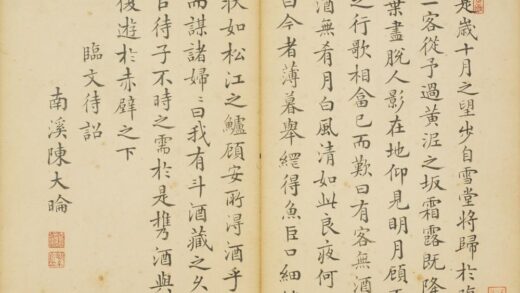 是歲十月之望步自雪堂將歸於臨
客從予過黃泥之坂霜露既降
葉盡脫人影在地仰見明月顧
之行歌相畣已而歎曰有客無酒
酒無肴月白風清如此良夜何
曰今者薄暮舉網得魚巨口細
狀如松江之鱸顧安所得酒乎
而謀諸婦〻曰我有斗酒藏之久
待子不時之需於是攜酒與
復遊於赤壁之下
臨文待詔
南溪陳大